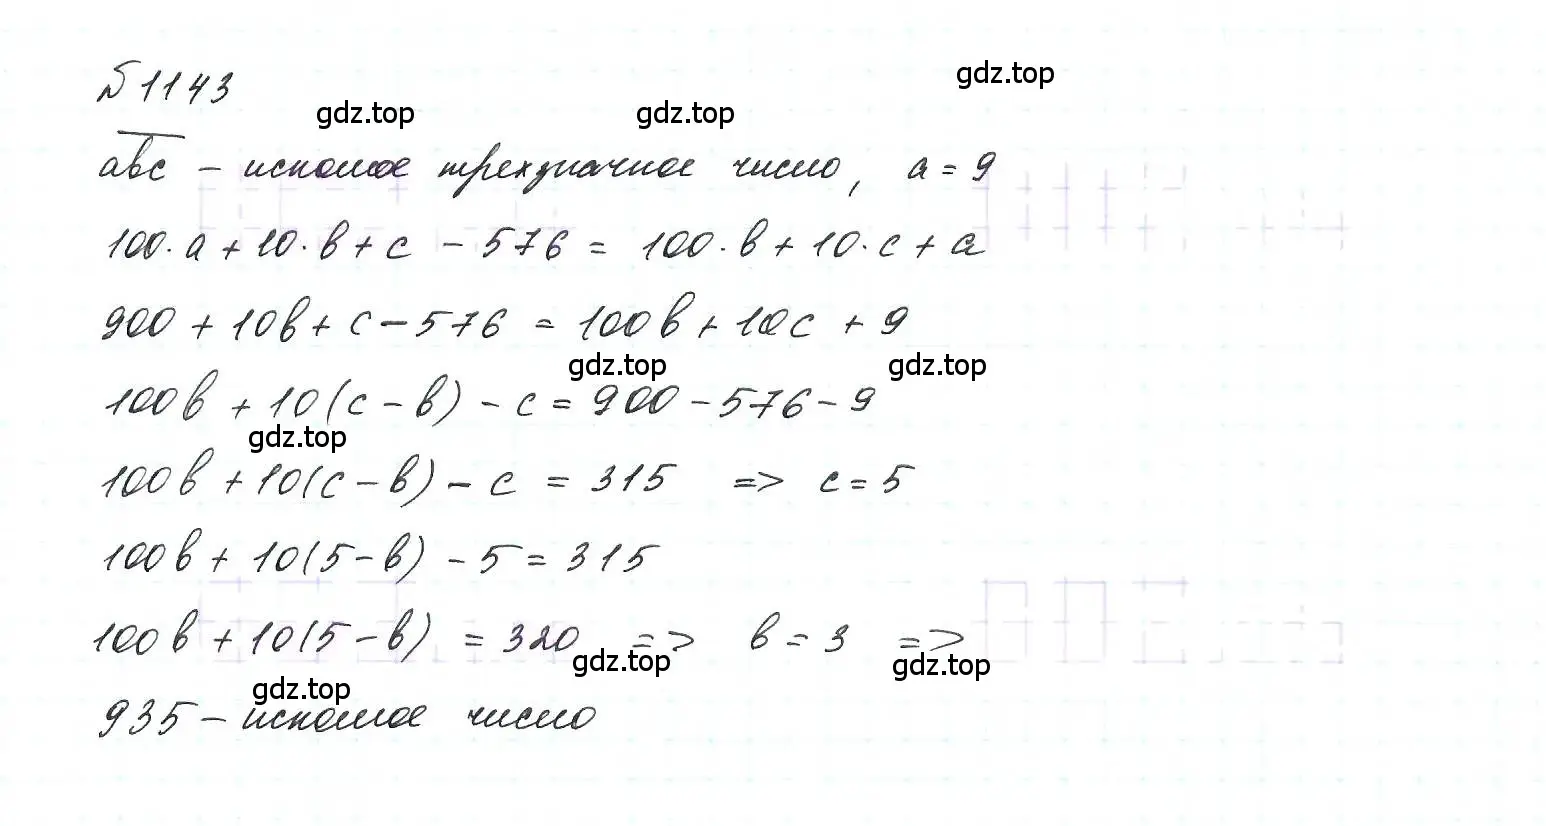 gdz.top
№1143
gdz.top gdz.top
abc – искомое трехзначное число, a = 9
100·a + 10·b + c – 576 = 100·b + 10·c + a
900 + 10b + c – 576 = 100b + 10c + 9
gdz.top gdz.top
100b + 10(c – b) – c = 900 – 576 – 9
gdz.top
100b + 10(c – b) – c = 315 => c = 5
100b + 10(5 – b) – 5 = 315
100b + 10(5 – b) = 320 => b = 3 =>
gdz.top gdz.top
gdz.top
935 – искомое число